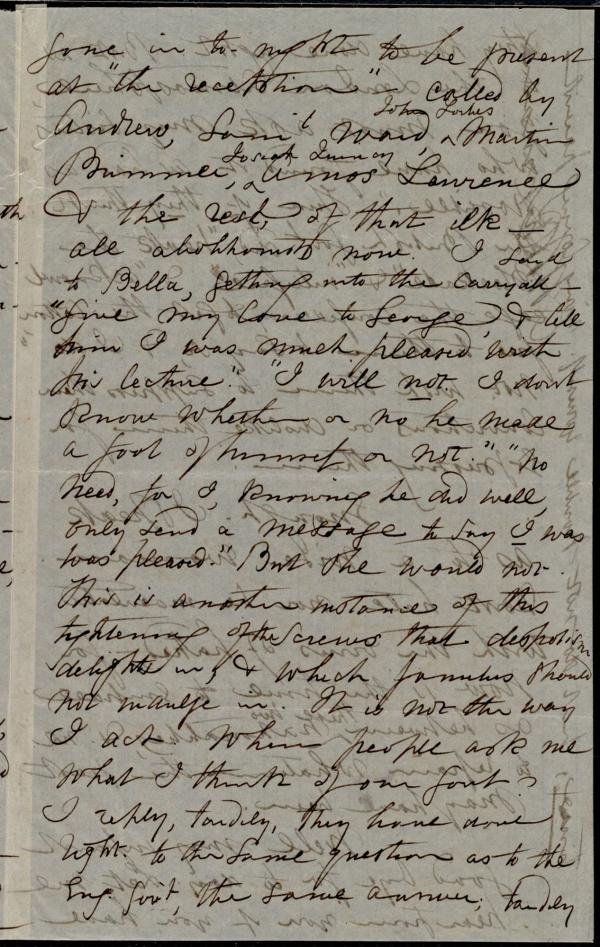 gone in to-night to be present
at "the reception" - called by
John Forbes
Andrew, Sam'l Ward, ^ Martin
Josiah Quincy
Brimmer, ^ Amos Lawrence
& the rest, of that ilk —
all abolitionists now. I said
to Bella, getting into the carryall -
"Give my love to George, & tell
him I was much pleased with
his lecture." "I will not. I dont
know whether or no he made
a fool of himself or not." "No
need, for I, knowing he did well,
only send a message to say I was
was pleased." But she would not.
This is another instance of this
tightening of the screws that despotism
delights in, & which families should
not indulge in. It is not the way
I act. When people ask me
what I think of our Govt?
I reply, tardily, they have done
right. to the same question as to the
Eng. Gov't, the same answer, tardily